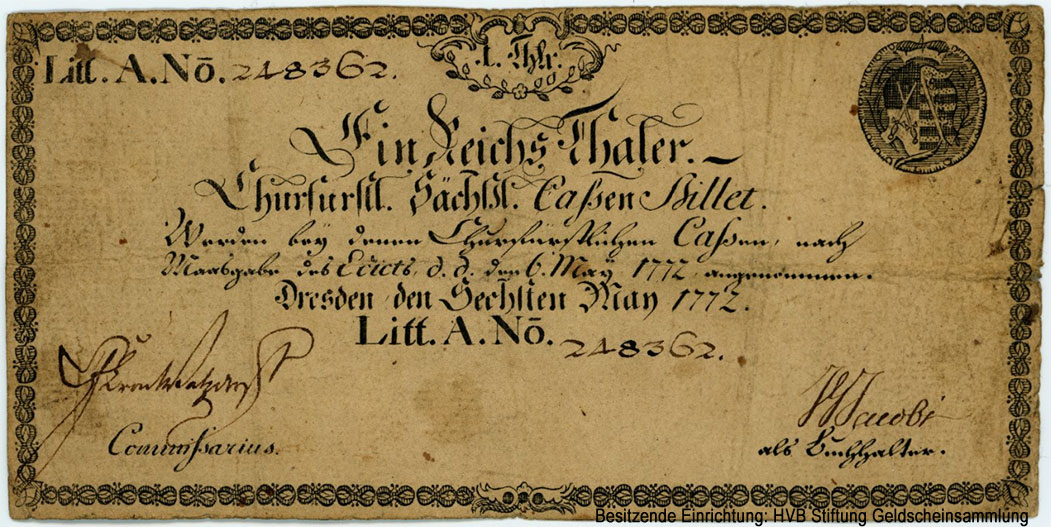 Litt. A. Nō. 248362.
1. Thlr.
Ein Reichs Thaler.
Churfürstl. Sächßl. Caßen Billet.
Werden bey denen Churfürstlichen Caßen, nach
Maasgabe des Edicts, d. d. den 6. May 1772 angenommen.
Dresden den Sechsten May 1772.
Litt. A. Nō. 248362.
Commißarius.
Jacobi
als Buchhalter.
Besitzende Einrichtung: HVB Stiftung Geldscheinsammlung